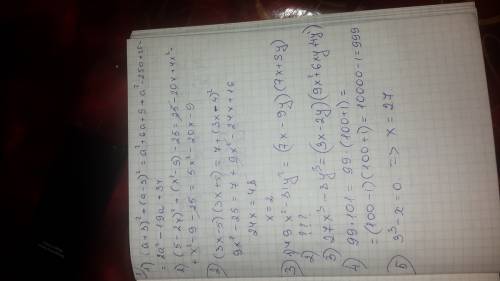 1) (a+3)² + (a-5)² = a² + 6a + 9 + a² - 25a + 25 =
= 2a² - 19a + 34
2) (5-2x)² + (x²-9) - 25 = 25 - 20x + 4x² +
+ x² - 9 - 25 = 5x² - 20x - 9
2) (3x-5)(3x+5) = 7 + (3x-4)²
9x² - 25 = 7 + 9x² - 24x + 16
24x = 48
x = 2
3) 1) 49x² - 81y² = (7x - 9y)(7x + 9y)
2) ???
3) 27x³ - 8y³ = (3x - 2y)(9x² + 6xy + 4y)
4) 99·101 = 99·(100+1) =
= (100-1)(100+1) = 10000 - 1 = 999
5) 3³ - x = 0 => x = 27